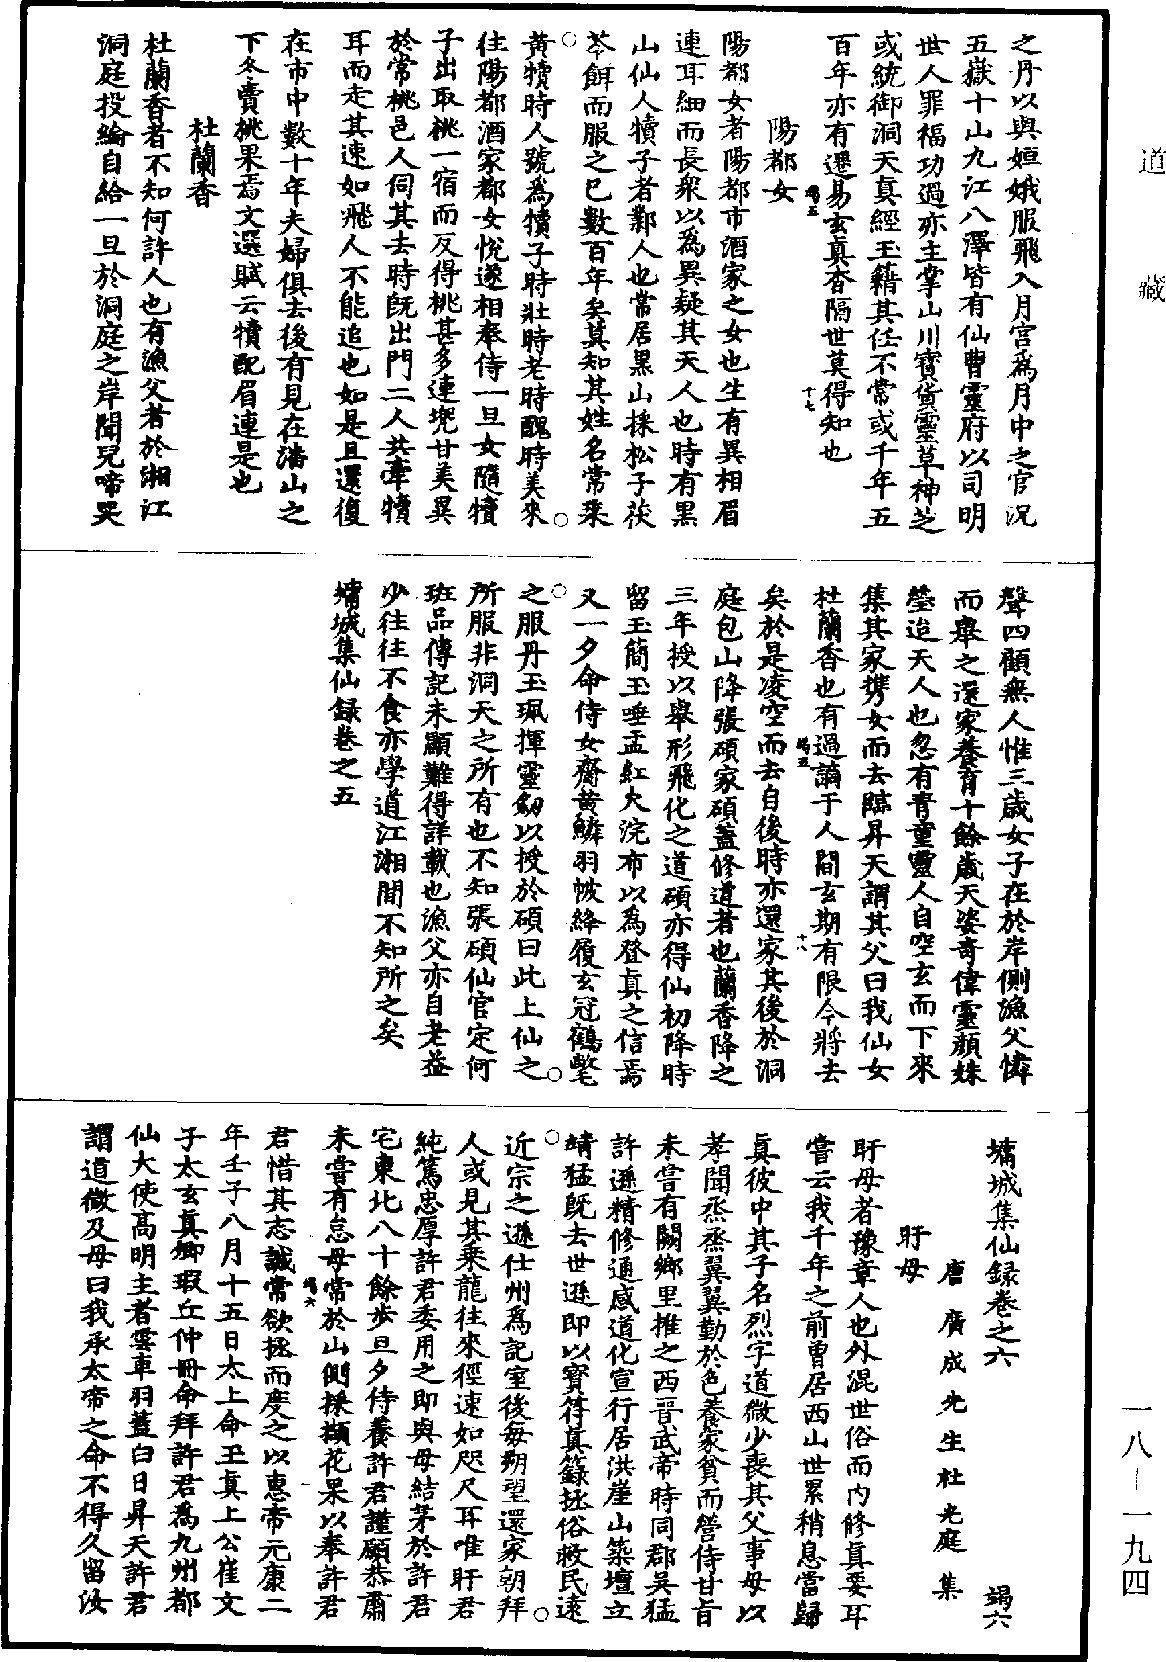 道藏
之丹以與姮娥服飛入月宮為月中之官況
五嶽十山九江八澤皆有仙曹靈府以司明
世人罪福功過亦主掌山川寶貨靈草神芝
或統御洞天真經玉籍其任不常或千年五
百年亦有遷易玄真杳隔世莫得知也
竭五
十七
陽都女
陽都女者陽都市酒家之女也生有異相眉
連耳細而長眾以為異疑其天人也時有黑
山仙人犢子者鄴人也常居黑山採松子茯
苓餌而服之已數百年矣莫知其姓名常乘
黃犢時人號為犢子時壯時老時醜時美來
往陽都酒家都女悅遂相奉侍一旦女隨犢
子出取桃一宿而反得桃甚多連兜甘美異
於常桃邑人伺其去時既出門二人共牽犢
耳而走其速如飛人不能追也如是且還復
在市中數十年夫婦俱去後有見在潘山之
下冬賣桃果焉文選賦云犢配眉連是也
杜蘭香
杜蘭香者不知何許人也有漁父者於湘江
洞庭投綸自給一旦於洞庭之岸聞兒啼哭
聲四顧無人惟三歲女子在於岸側漁父憐
而舉之還家養育十餘歲天姿奇偉靈顏姝
瑩迨天人也忽有青童靈人自空玄而下來
集其家携女而去臨昇天謂其父曰我仙女
杜蘭香也有過謫于人間玄期有限今將去
竭五
十八
矣於是凌空而去自後時亦還家其後於洞
庭包山降張碩家碩蓋修道者也蘭香降之
三年授以舉形飛化之道碩亦得仙初降時
留玉簡玉唾盂紅火浣布以為登真之信焉
又一夕命侍女齎黃鱗羽帔絳履玄冠鶴氅
之服丹玉珮揮靈劒以授於碩曰此上仙之
所服非洞天之所有也不知張碩仙官定何
班品傳記未顯難得詳載也漁父亦自老益
少往往不食亦學道江湘間不知所之矣
墉城集仙錄卷之五
墉城集仙錄卷之六
竭六
唐廣成先生杜光庭集
盱母
盱母者豫章人也外混世俗而內修真要耳
嘗云我千年之前曾居西山世累稍息當歸
真彼中其子名烈字道微少喪其父事母以
孝聞烝烝翼翼勤於色養家貧而營侍甘旨
未嘗有闕鄉里推之西晉武帝時同郡吳猛
許遜精修通感道化宣行居洪崖山築壇立
靖猛既去世遜即以寶符真籙拯俗救民遠
近宗之遜仕州為記室後每朔望還家朝拜
人或見其乘龍往來徑速如咫尺耳唯盱君
純篤忠厚許君委用之即與母結茅於許君
宅東北八十餘步旦夕侍養許君謹願恭肅
未嘗有怠母常於山側採擷花果以奉許君
竭六
君惜其志誠常欲拯而度之以惠帝元康二
年壬子八月十五日太上命玉真上公崔文
子太玄真卿瑕丘仲冊命拜許君為九州都
仙大使高明主者雲車羽蓋白日昇天許君
謂道微及母曰我承太帝之命不得久留汝
一八—一九四